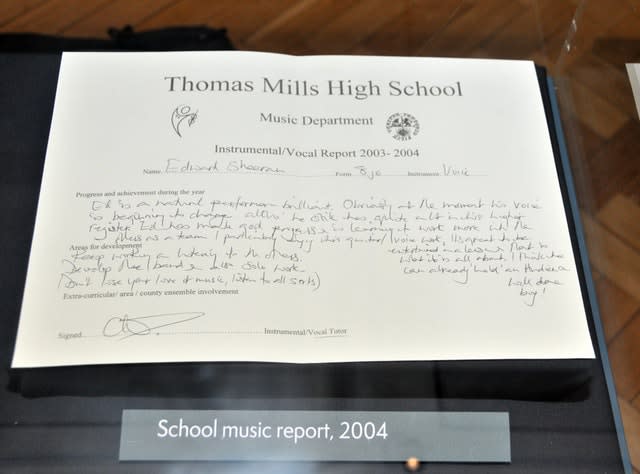 Thomas Mills High School
Music Department
Instrumental/Vocal Report 2003- 2004
Name Edward Sheeran Form 8JO Instrument Voice
Progress and achievement during the year
Ed is a natural performer - brilliant. Obviously at the moment his voice
is beginning to change altho' he still has quite a lot in his higher
register. Ed has made good progress in learning to work more with the
as a team. I particularly enjoy his guitar/voice work. It's great to be
entertained in a lesson! That is
what it's all about. I think he
can already 'hold' an audience
well done
boy!
Areas for development
Keep working on listening to the others.
Develop the band & also solo work
(Don't lose your love of music, listen to all sorts)
Extra-curricular/ area / county ensemble involvement
Signed Instrumental/Vocal Tutor
School music report, 2004